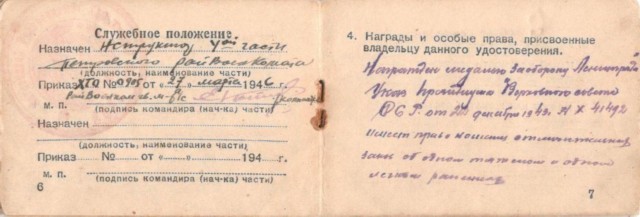 Служебное положение
Назначен Инструктор 4ой части
Петровского РайВоенкомата
(должность, наименование части)
Приказ ХТО № 0905 от «27» марта 1946 г.
м. п.
(подпись командира (нач-ка) части)
Назначен
(должность, наименование части)
Приказ № от « » 194 г.
м. п.
(подпись командира (нач-ка) части)
6
4. Награды и особые права, присвоенные
владельцу данного удостоверения.
Награжден медалью За оборону Ленинграда
Указ Президиума Верховного совета
СССР от 22 декабря 1942 № 41492
имеет право ношения отличительного
знака об одном тяжелом и одном
легком ранении
7